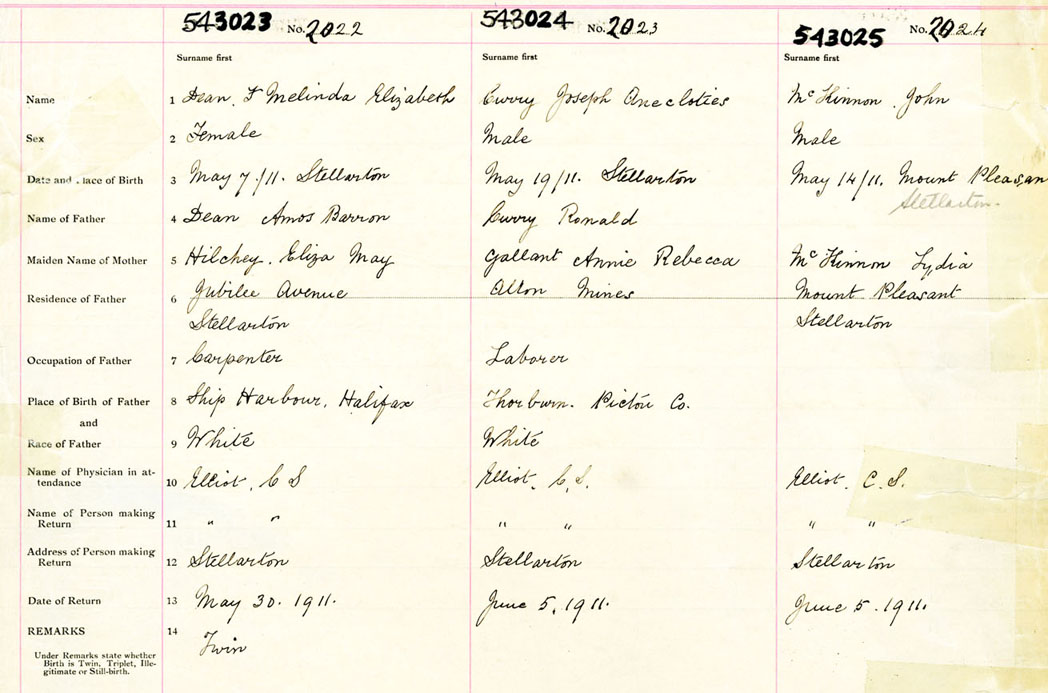 543023 No. 2022
543024 No. 2023
543025 No. 2024
Surname first
Surname first
Surname first
Name 1 Dean, F Melinda Elizabeth
Curry Joseph Anecloties
McKinnon, John
Sex 2 Female
Male
Male
Date and Place of Birth 3 May 7/11. Stellarton
May 19/11. Stellarton
May 14/11. Mount Pleasan
Stellarton.
Name of Father 4 Dean Amos Barron
Curry Ronald
Maiden Name of Mother 5 Hilchey, Eliza May
Gallant Annie Rebecca
McKinnon Lydia
Residence of Father 6 Jubilee Avenue
Stellarton
Albon Mines
Mount Pleasant
Stellarton
Occupation of Father 7 Carpenter
Laborer
Place of Birth of Father 8 Ship Harbour, Halifax
Thorburn. Pictou Co.
and
Race of Father 9 White
White
Name of Physician in at-
tendance 10 Elliot, C S
Elliot, C. S.
Elliot, C. S.
Name of Person making
Return 11 " "
" "
" "
Address of Person making
Return 12 Stellarton
Stellarton
Stellarton
Date of Return 13 May 30. 1911.
June 5, 1911.
June 5. 1911.
REMARKS 14 Twin
Under Remarks state whether
Birth is Twin, Triplet, Ille-
gitimate or Still-birth.